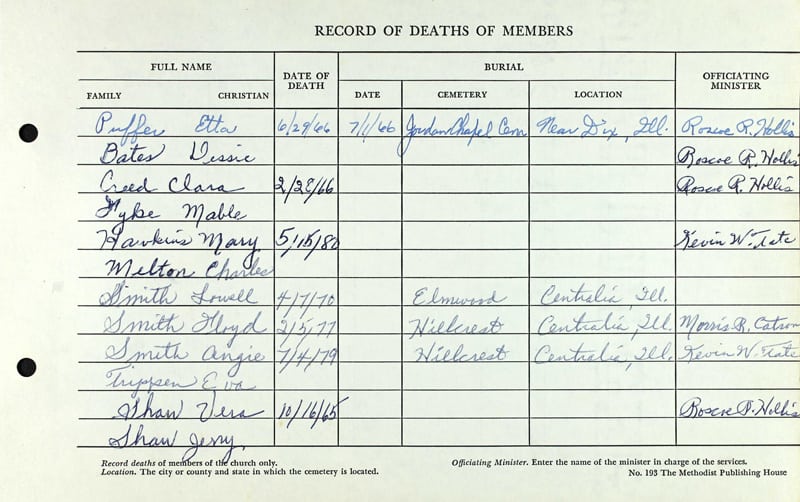 RECORD OF DEATHS OF MEMBERS
FULL NAME DATE OF DEATH BURIAL OFFICIATING MINISTER
FAMILY CHRISTIAN DATE CEMETERY LOCATION
Puffer Etta 6/29/66 7/1/66 Jordan Chapel Cem Near Dix, Ill. Roscoe R. Hollis
Bates Dessie Roscoe R. Hollis
Creed Clara 2/28/66 Roscoe R. Hollis
Fyke Mable
Hawkins Mary 5/15/80 Kevin W. Tate
Melton Charles
Smith Lowell 4/7/70 Elmwood Centralia, Ill.
Smith Floyd 2/5/77 Hillcrest Centralia, Ill. Morris R. Catron
Smith Angie 7/4/79 Hillcrest Centralia, Ill. Kevin W. Tate
Trippen Eva
Shaw Vera 10/16/65 Roscoe R. Hollis
Shaw Jerry.
Record deaths of members of the church only. Officiating Minister. Enter the name of the minister in charge of the services.
Location. The city or county and state in which the cemetery is located. No. 193 The Methodist Publishing House